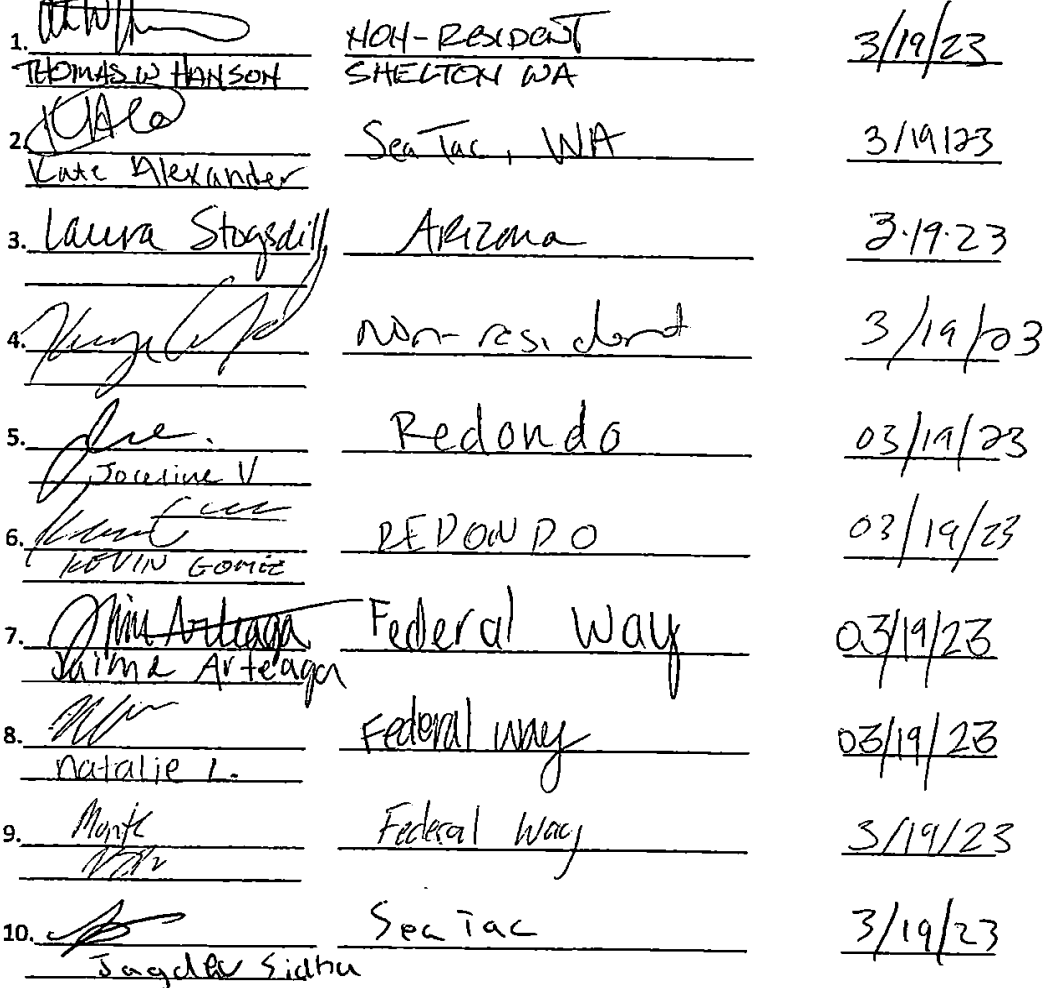 1. NON-RESIDENT 3/19/23
THOMAS W HANSON SHELTON WA
2. SeaTac, WA 3/19/23
Kate Alexander
3. Laura Stogsdill Arizona 3.19.23
4. Non-resident 3/19/23
5. Redondo 03/19/23
Joceline V
6. REDONDO 03/19/23
KEVIN GOMEZ
7. Jaime Arteaga Federal Way 03/19/23
Jaime Arteaga
8. Federal way 03/19/23
natalie L.
9. Federal Way 3/19/23
10. SeaTac 3/19/23
Jagdev Sidhu